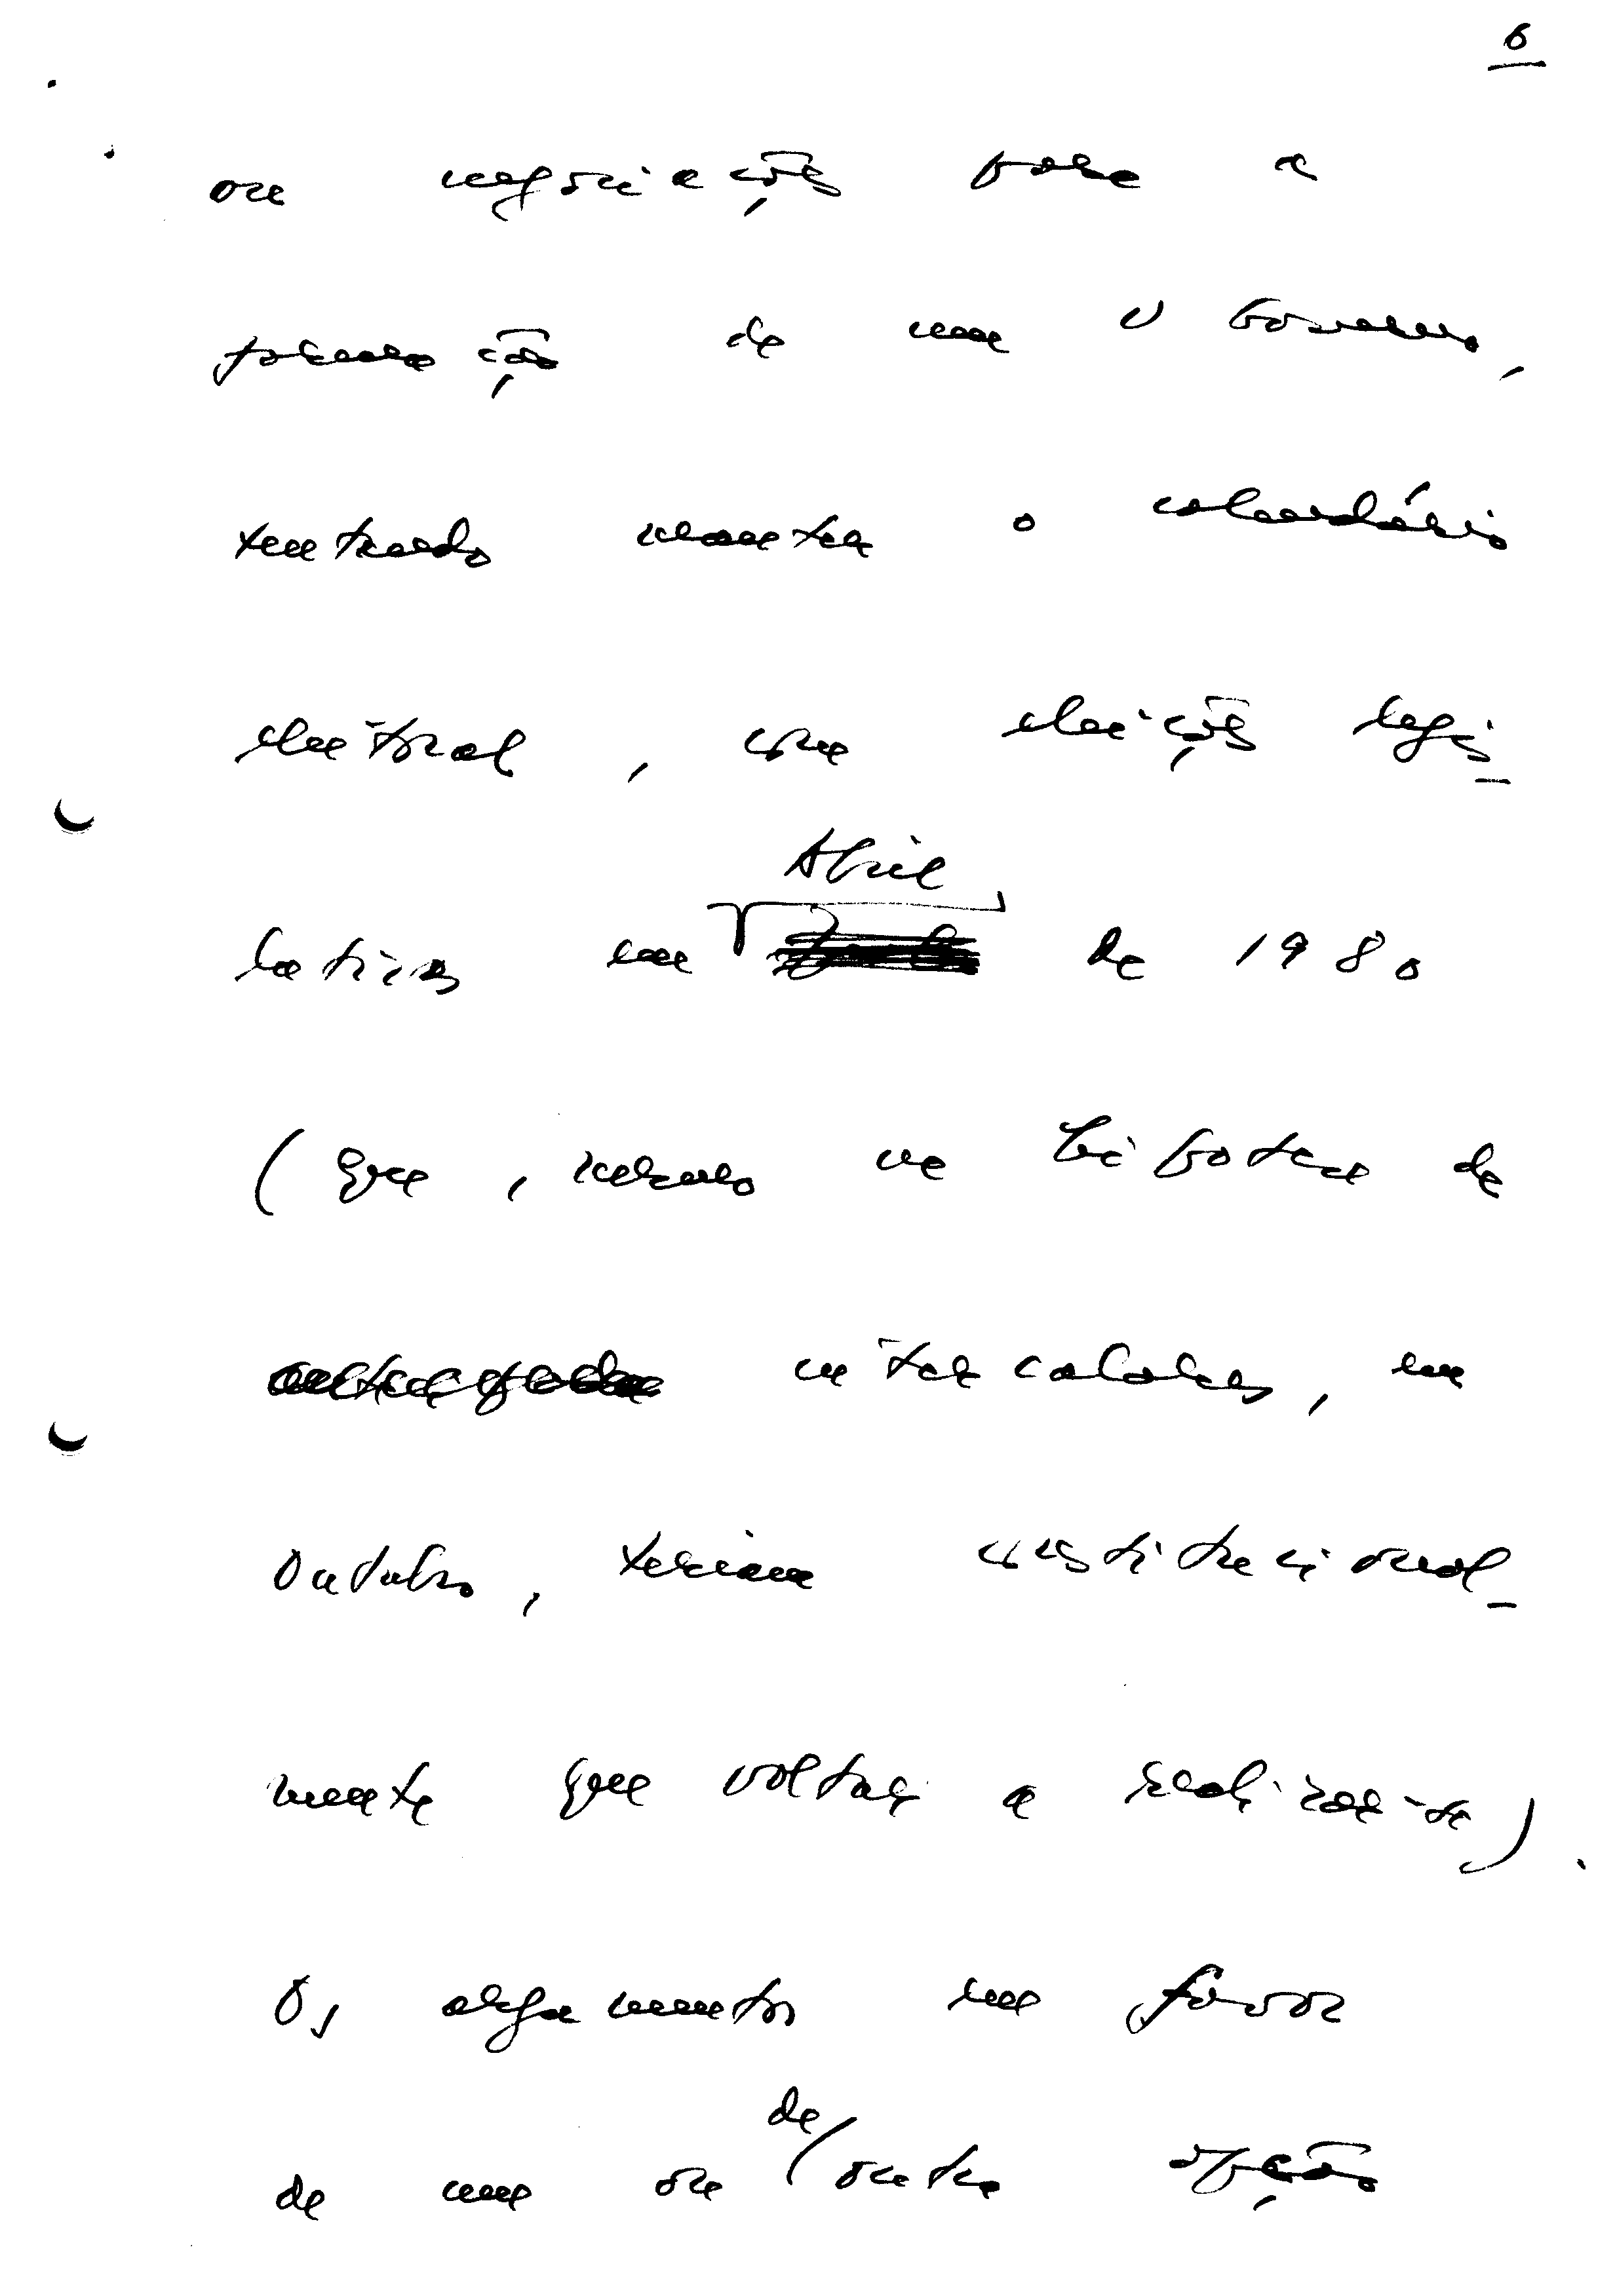 6
ou negociações para a
formação de um V Governo,
tentando manter o calendário
eleitoral, com eleições legis-
Abril
lativas em de 1980
(que, mesmo na hipótese de
intercalares, em
Outubro, teriam constitucional-
mente que voltar a realizar-se).
Os argumentos em favor
de
de uma ou outra opção